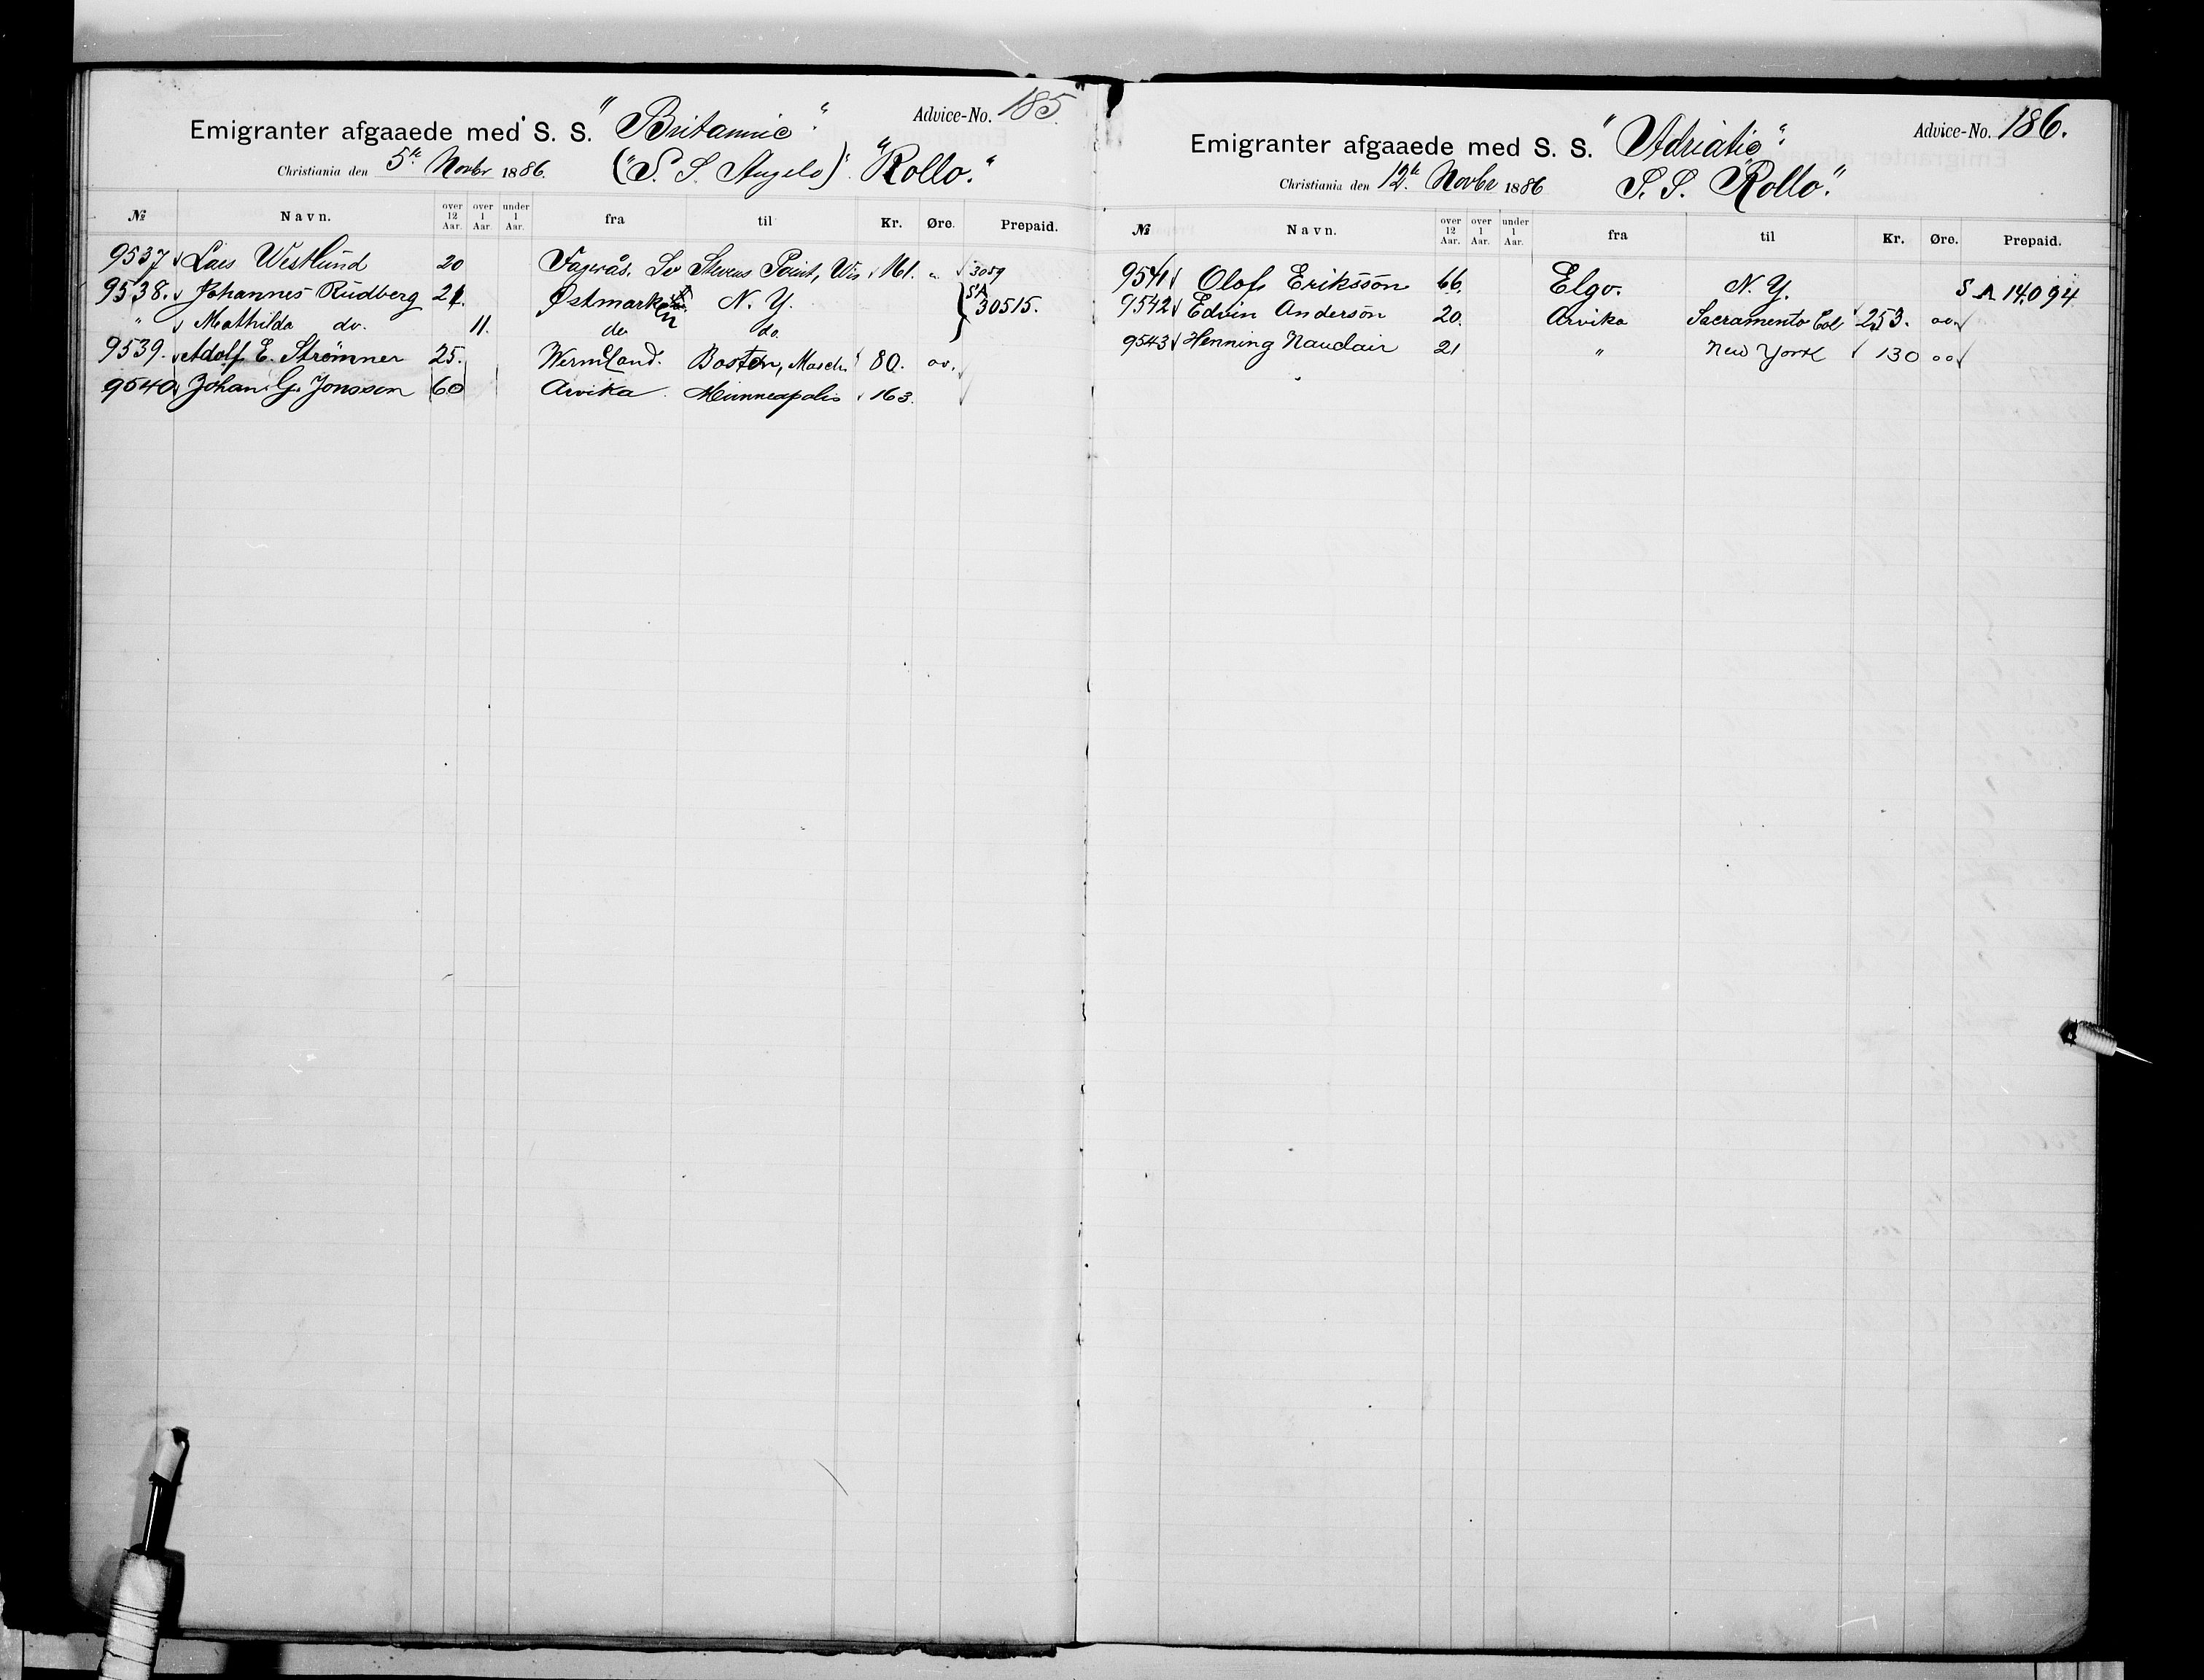 Advice-No. 185.
Emigranter afgaaede med S. S. "Britannic".
Christiania den 5te Novbr 1886. ("S. S. Angelo") "Rollo."
№ Navn. over 12 Aar. over 1 Aar. under 1 Aar. fra til Kr. Øre. Prepaid.
9537 Lars Westlund 20 Stevens Point, Wis 161. " 3059
9538. Johannes Rudberg 21. Østmarken N. Y. SA 30515.
" Mathilda do. 11. do do.
9539. Adolf E. Strømner 25. Wermland. Boston, 80. oo.
9540 Johan G. Jonsson 60 Arvika. Minneapolis 163.
Advice-No. 186.
Emigranter afgaaede med S. S. "Adriatic".
Christiania den 12te Novbr 1886 S. S. "Rollo".
№ Navn. over 12 Aar. over 1 Aar. under 1 Aar. fra til Kr. Øre. Prepaid.
9541 Olof Eriksson 66. N. Y. S A 14094
9542 Edvin Anderson 20. Arvika Sacramento Cal 253. oo.
9543 Henning 21 " New York 130 oo